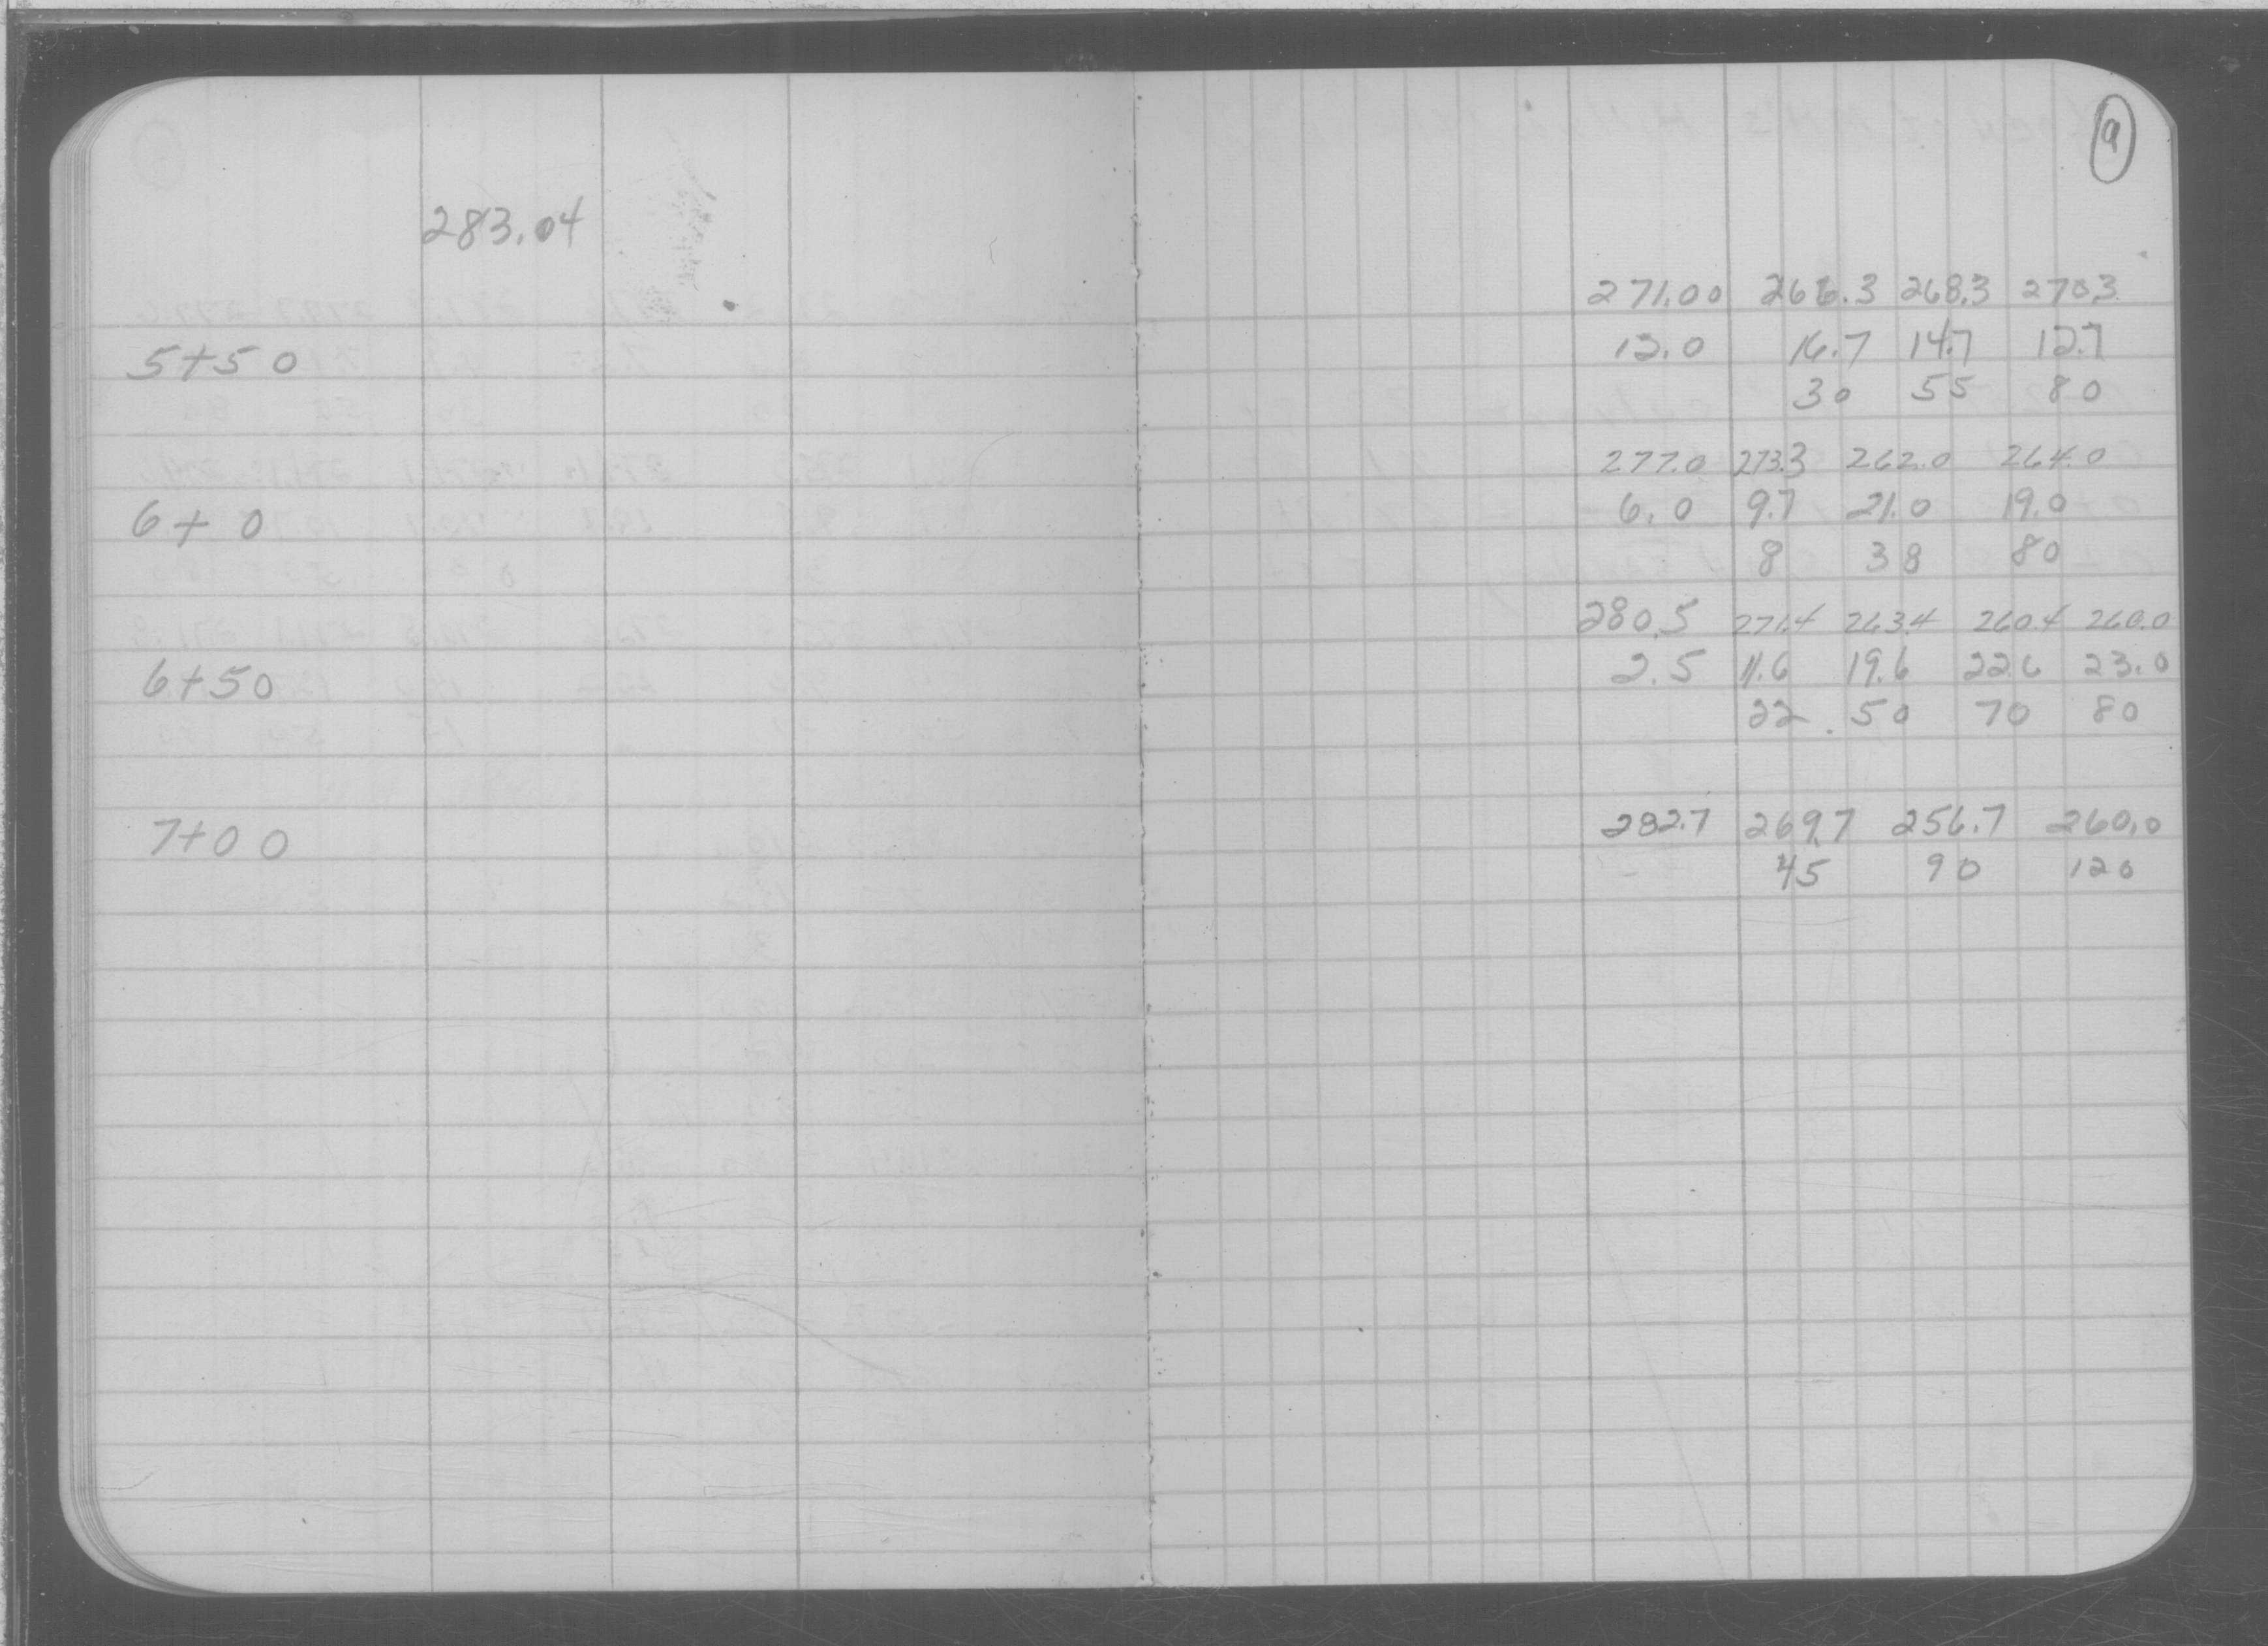 9
283.04
271.00 266.3 268.3 270.3
5+50 12.0 16.7 14.7 12.7
30 55 80
277.0 273.3 262.0 264.0
6+ 0 6.0 9.7 21.0 19.0
8 38 80
280.5 271.4 263.4 260.4 260.0
6+50 2.5 11.6 19.6 22.6 23.0
22 50 70 80
7+00 282.7 269.7 256.7 260.0
45 90 120